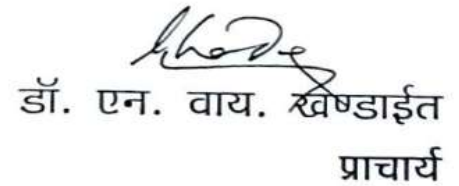 डॉ. एन. वाय. खेण्डाईत
प्राचार्य